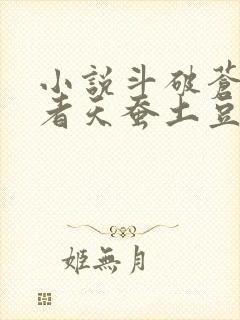 小説斗破蒼
者天蚕土豆
姬無月